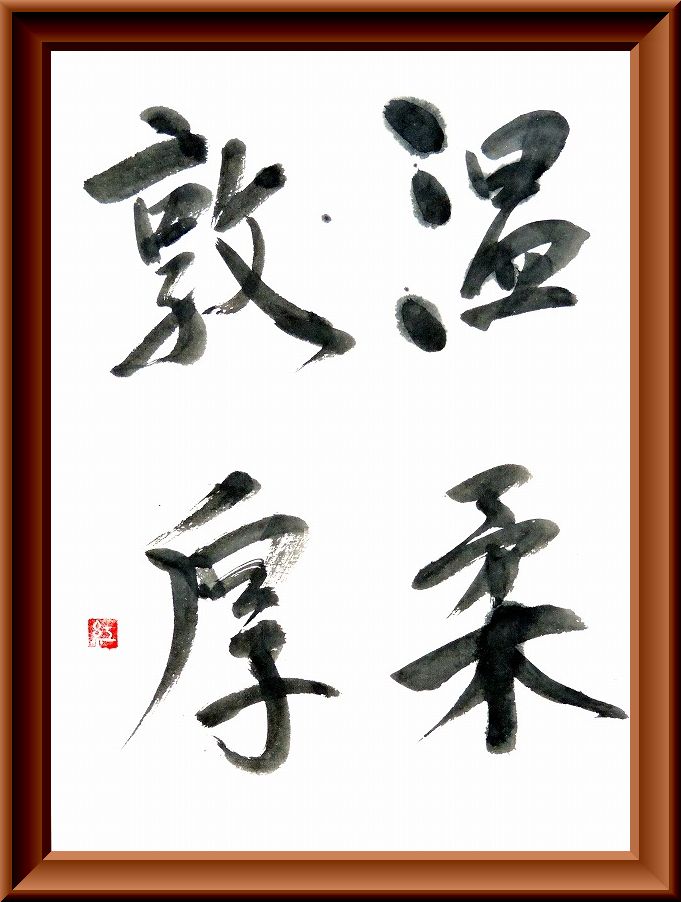 温柔
敦厚